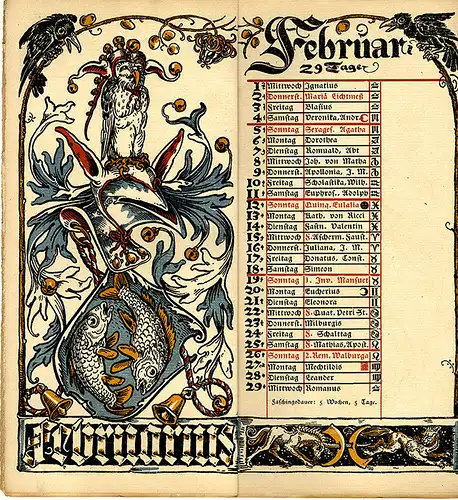 Februarius
Februar
29 Tage
1 Mittwoch Ignatius
2 Donnerst. Mariä Lichtmeß
3 Freitag Blasius
4 Samstag Veronika, Andr.
5 Sonntag Sexages. Agatha
6 Montag Dorothea
7 Dienstag Romuald, Abt
8 Mittwoch Joh. von Matha
9 Donnerst. Apollonia, J. M.
10 Freitag Scholastika, Wilh.
11 Samstag Euphros., Adolph
12 Sonntag Quinq. Eulalia
13 Montag Kath. von Ricci
14 Dienstag Fastn. Valentin
15 Mittwoch F. Ascherm. Faust.
16 Donnerst. Juliana, J. M.
17 Freitag Donatus, Const.
18 Samstag Simeon
19 Sonntag 1. Inv. Mansuet
20 Montag Eucherius
21 Dienstag Eleonora
22 Mittwoch F. Quat. Petri St.
23 Donnerst. Milburgis
24 Freitag F. Schalttag
25 Samstag F. Mathias, Apost.
26 Sonntag 2. Rem. Walburga
27 Montag Mechtildis
28 Dienstag Leander
29 Mittwoch Romanus
Faschingsdauer: 5 Wochen, 5 Tage.